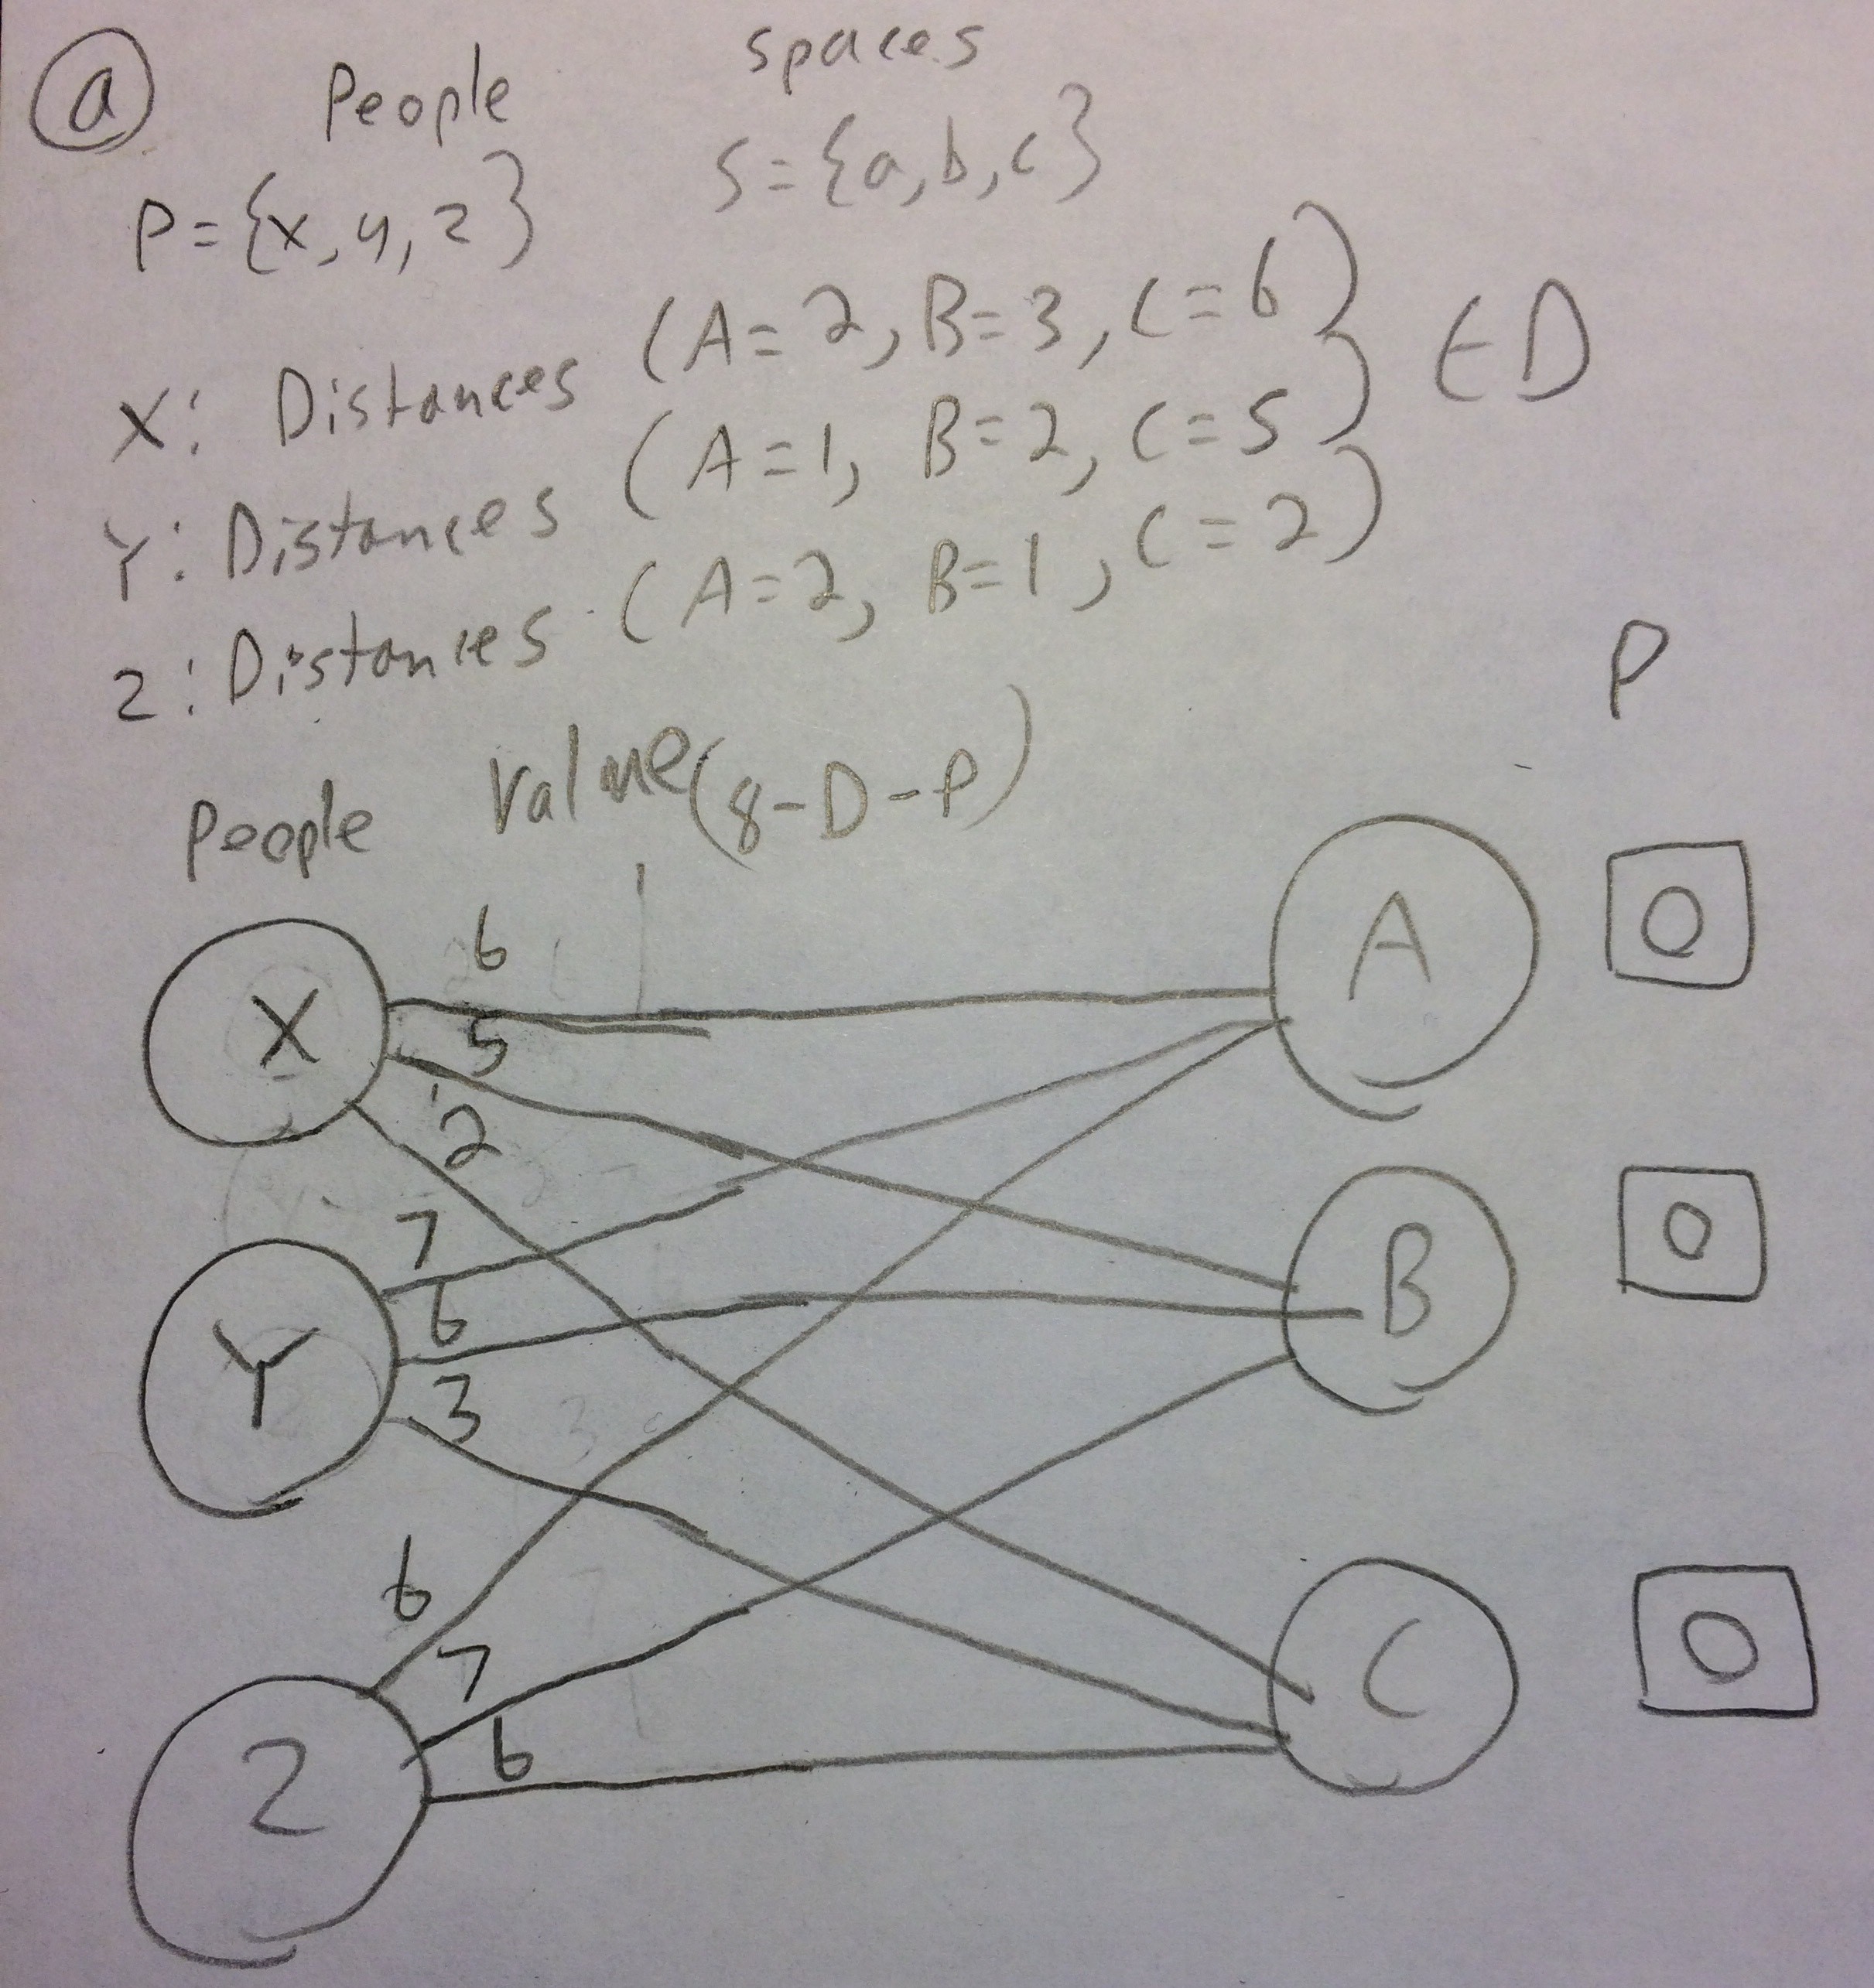 a People spaces
P={x,y,z} S={a,b,c}
X: Distances (A=2, B=3, C=6) ∈D
Y: Distances (A=1, B=2, C=5)
Z: Distances (A=2, B=1, C=2)
P
People Value(8-D-P)
6
X A 0
5
2
7
Y B 0
6
3
6
Z C 0
7
6